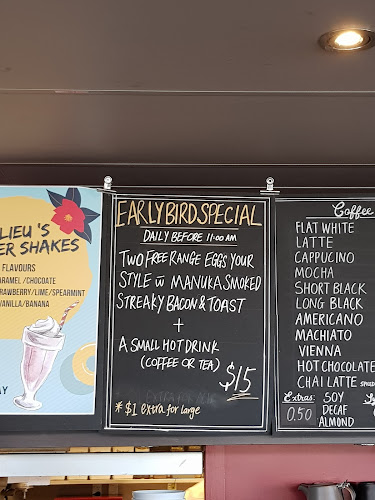 LIEU'S
ER SHAKES
FLAVOURS
ARAMEL/CHOCOATE
RAWBERRY/LIME/SPEARMINT
VANILLA/BANANA
AY
EARLYBIRD SPECIAL
DAILY BEFORE 11:00 AM
TWO FREE RANGE EGGS YOUR
STYLE w MANUKA SMOKED
STREAKY BACON & TOAST
+
A SMALL HOT DRINK
(COFFEE OR TEA)
$15
* $1 extra for large
Coffee
FLAT WHITE
LATTE
CAPPUCINO
MOCHA
SHORT BLACK
LONG BLACK
AMERICANO
MACHIATO
VIENNA
HOT CHOCOLATE
CHAI LATTE
Extras: SOY
0.50 DECAF
ALMOND